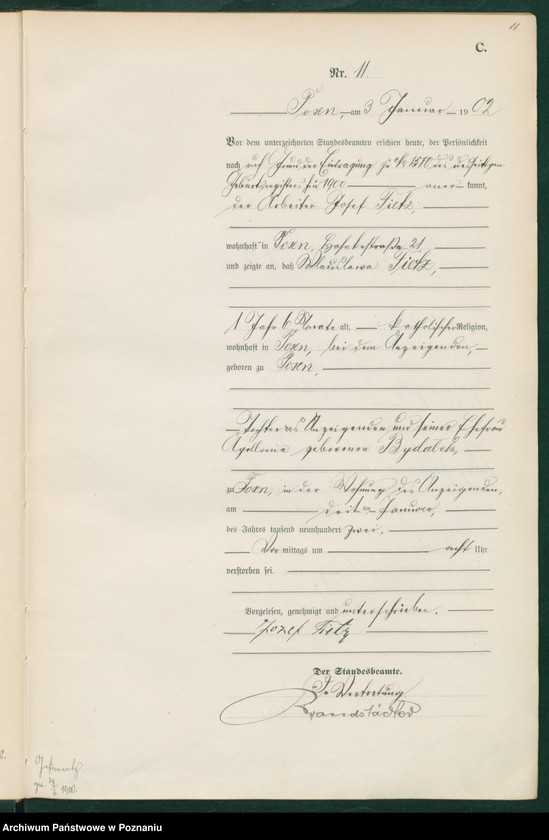 11
C.
Nr. 11.
Posen, am 3 Januar 1902
Vor dem unterzeichneten Standesbeamten erschien heute, der Persönlichkeit
nach auf Grund der Eintragung zu No 1580 des
Geburtsregisters für 1900 anerkannt,
der Arbeiter Josef Tietz,
wohnhaft in Posen, 21,
und zeigte an, daß Tietz,
1 Jahr 6 Monate alt, katholischer Religion,
wohnhaft in Posen, bei dem Anzeigenden,
geboren zu Posen,
Tochter des Anzeigenden und seiner Ehefrau
Apollonia geborenen
zu Posen, in der Wohnung des Anzeigenden,
am dritten Januar,
des Jahres tausend neunhundert zwei,
Vor mittags um acht Uhr
verstorben sei.
Vorgelesen, genehmigt und unterschrieben.
Jozef Tietz
Der Standesbeamte.
In Vertretung
Brandstädter
1900.
Archiwum Państwowe w Poznaniu